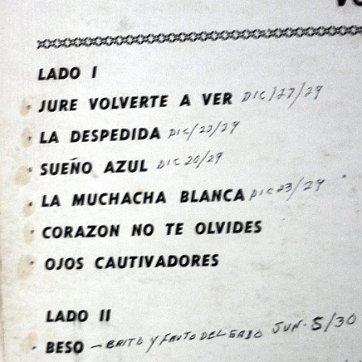 LADO I
JURE VOLVERTE A VER DIC/27/29
LA DESPEDIDA DIC/23/29
SUEÑO AZUL DIC 20/29
LA MUCHACHA BLANCA DIC 23/29
CORAZON NO TE OLVIDES
OJOS CAUTIVADORES
LADO II
BESO - JUN. 5/30